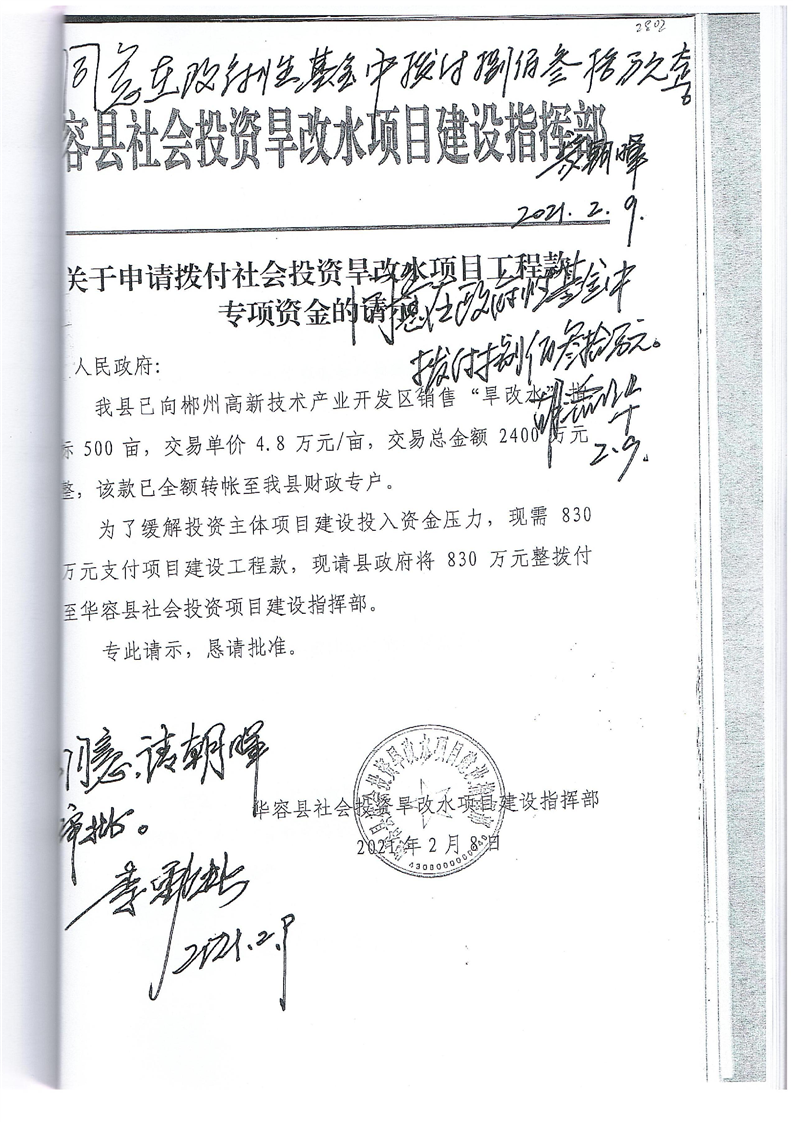 2802
同意在政府性基金中拨付捌佰叁拾万元整
容县社会投资旱改水项目建设指挥部
朝晖
2021.2.9.
关于申请拨付社会投资旱改水项目工程款
专项资金的请示
同意在政府性基金中
拨付捌佰叁拾万元。
2.9.
人民政府:
我县已向郴州高新技术产业开发区销售“旱改水”指
标 500 亩，交易单价 4.8 万元/亩，交易总金额 2400 万元
整，该款已全额转帐至我县财政专户。
为了缓解投资主体项目建设投入资金压力，现需 830
万元支付项目建设工程款，现请县政府将 830 万元整拨付
至华容县社会投资项目建设指挥部。
专此请示，恳请批准。
同意，请朝晖
审批。
华容县社会投资旱改水项目建设指挥部
2021 年 2 月 8 日
2021.2.9